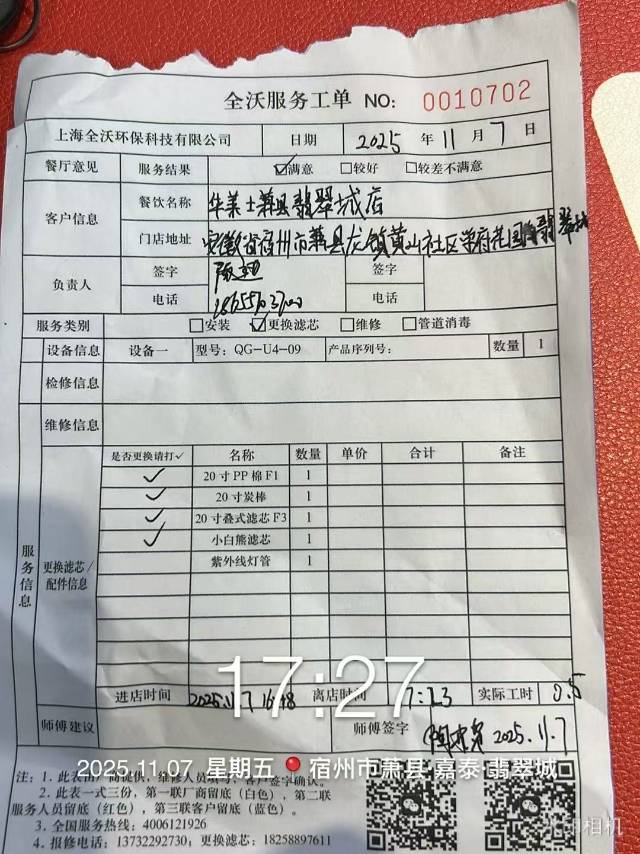 全沃服务工单 NO: 0010702
上海全沃环保科技有限公司 日期 2025 年 11 月 7 日
餐厅意见 服务结果 ☑满意 □较好 □较差不满意
客户信息 餐饮名称 华莱士萧县翡翠城店
门店地址 安徽省宿州市萧县龙镇黄山社区学府花园翡翠城
负责人 签字 签字
电话 电话
服务类别 □安装 ☑更换滤芯 □维修 □管道消毒
设备信息 设备一 型号: QG-U4-09 产品序列号: 数量 1
检修信息
维修信息
服务信息 更换滤芯/配件信息
是否更换请打✓ 名称 数量 单价 合计 备注
✓ 20寸PP棉F1 1
✓ 20寸炭棒 1
✓ 20寸叠式滤芯F3 1
✓ 小白熊滤芯 1
紫外线灯管 1
17:27
进店时间 2025.11.7 16:48 离店时间 17:23 实际工时 0.5
师傅建议 师傅签字 2025.11.7
2025.11.07 星期五 宿州市萧县·嘉泰·翡翠城
注: 1. 此表由厂商提供, 维修人员填写, 客户签字确认。
2. 此表一式三份, 第一联厂商留底(白色), 第二联
服务人员留底(红色), 第三联客户留底(蓝色)。
3. 全国服务热线: 4006121926
4. 报修电话: 13732292730; 更换滤芯: 18258897611
水印相机